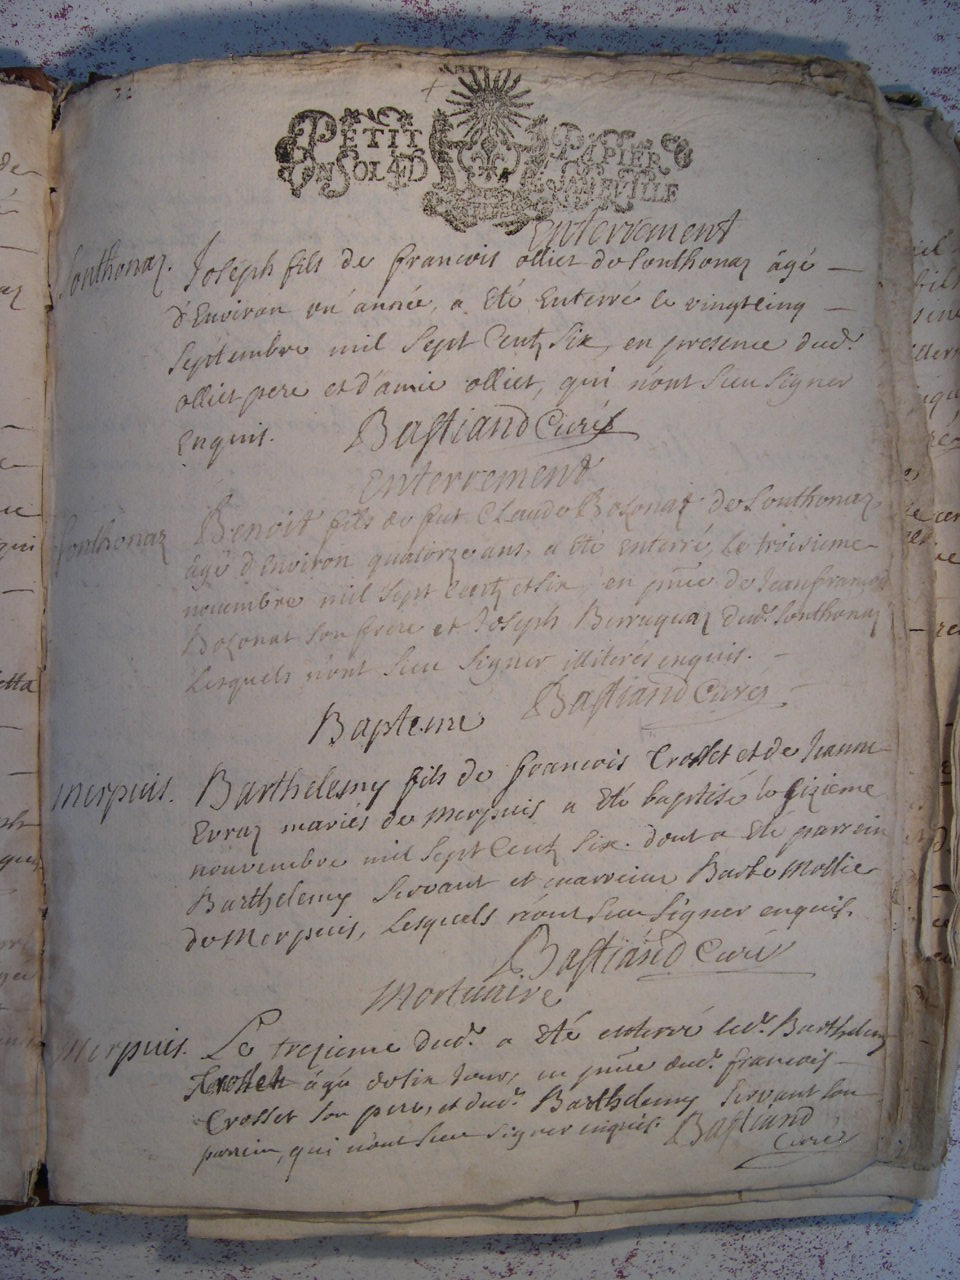 PETIT PAPIER
UN SOL 4 D
Enterrement
Sonthonaz. Joseph fils de francois olliet de Sonthonaz âgé
d'Environ un année, a Eté Enterré le vingtcinq
Septembre mil Sept Centz Six, en presence dud.
olliet pere et d'amie olliet, qui n'ont Sceu Signer
Enquis. Bastiand Curé
Enterrement
Sonthonaz Benoit fils de fut Claude Bozonat de Sonthonaz
âgé d'Environ quatorze ans, a Eté enterré, Le troisieme
novembre mil Sept Centz et Six, en pnce de Jeanfrançois
Bozonat Son frere et Joseph Berruquaz dud. Sonthonaz
Lesquels n'ont Sceu Signer illiterés enquis.
Bastiand Curé
Bapteme
Merpuis. Barthelemy fils de francois Crosset et de Jeanne
Evraz mariés de Merpuis a Eté baptisé le sizieme
nouvembre mil Sept Centz Six. dont a Eté parrein
Barthelemy Servant et marreine Barbe Mollie
de Merpuis, Lesquels n'ont Sceu Signer enquis.
Bastiand Curé
Mortuaire
Merpuis. Le tresieme dud. a Eté enterré led. Barthelemy
Crosset âgé de six Jour, en pnce dud. francois
Crosset Son pere, et dud. Barthelemy Servant Son
parrein, qui n'ont Sceu Signer enquis. Bastiand
Curé